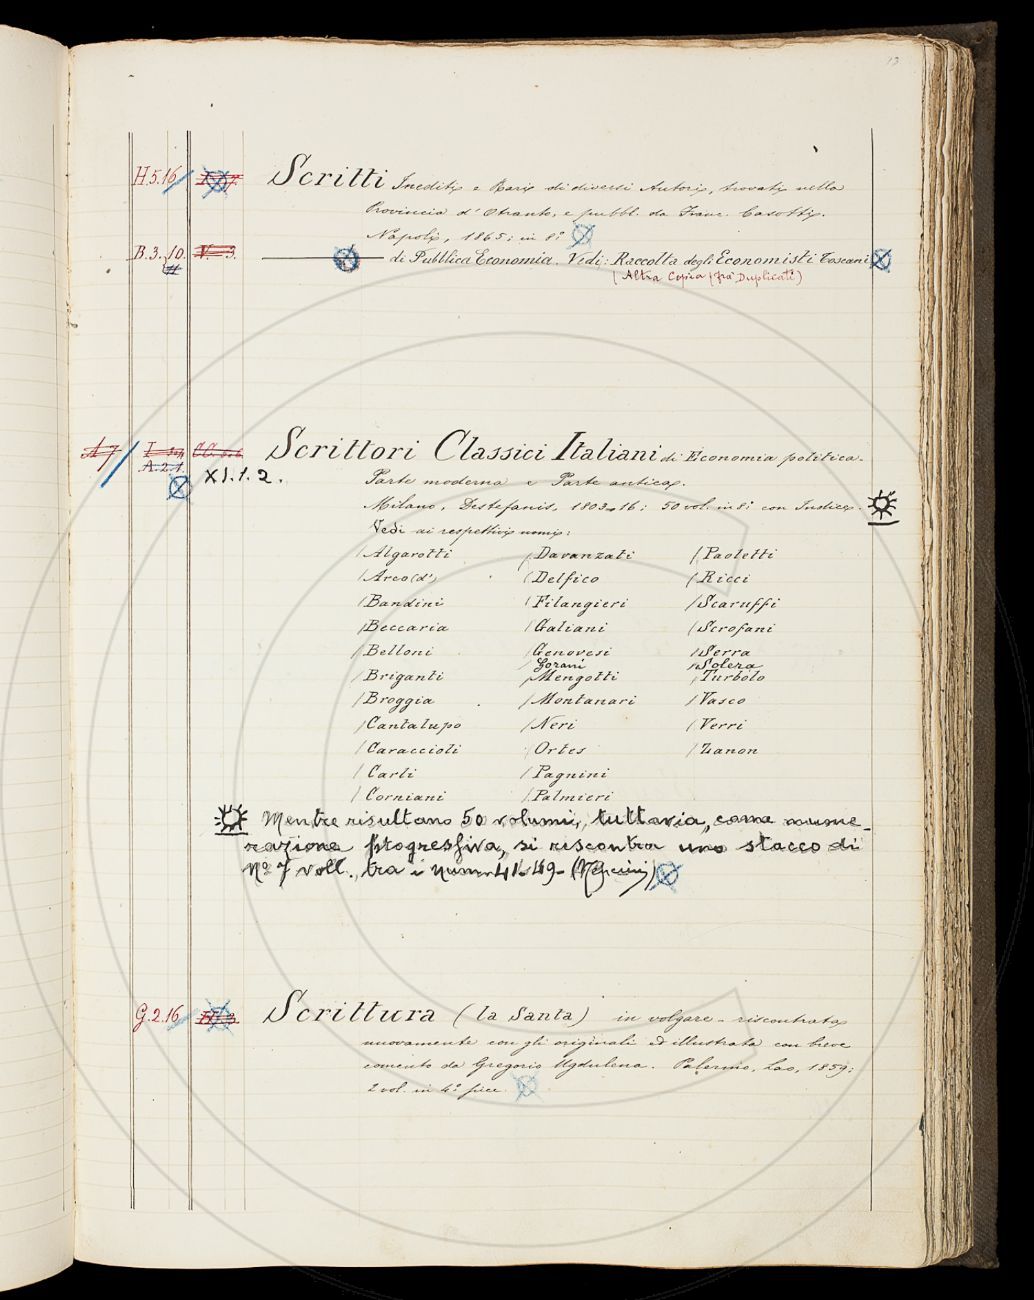 13
H.5.16
Scritti Inediti e Rari di diversi Autori, trovati nella
Provincia d' Otranto, e pubbl. da Franc. Casotti.
Napoli, 1865; in 8.°
B.3.10. V. 3.
11
di Pubblica Economia. Vedi: Raccolta degli Economisti Toscani
(Altra Copia (fra Duplicati)
A 7
Scrittori Classici Italiani di Economia politica.
A.2.1.
XI.1.2.
Parte moderna e Parte antica.
Milano, Destefanis, 1803-16; 50 vol. in 8.° con Indice.
Vedi ai respettivi nomi:
Algarotti Davanzati Paoletti
Arco (d') Delfico Ricci
Bandini Filangieri Scaruffi
Beccaria Galiani Scrofani
Belloni Genovesi Serra
Gorani Solera
Briganti Mengotti Turbolo
Broggia Montanari Vasco
Cantalupo Neri Verri
Caraccioli Ortes Zanon
Carli Pagnini
Corniani Palmieri
Mentre risultano 50 volumi, tuttavia, come nume-
razione progressiva, si riscontra uno stacco di
N° 7 voll., tra i numeri 41-49-
G.2.16
Scrittura (la Santa) in volgare - riscontrata
nuovamente con gli originali ed illustrata con breve
comento da Gregorio Ugdulena. Palermo, Lao, 1859;
2 vol. in 4.° picc.